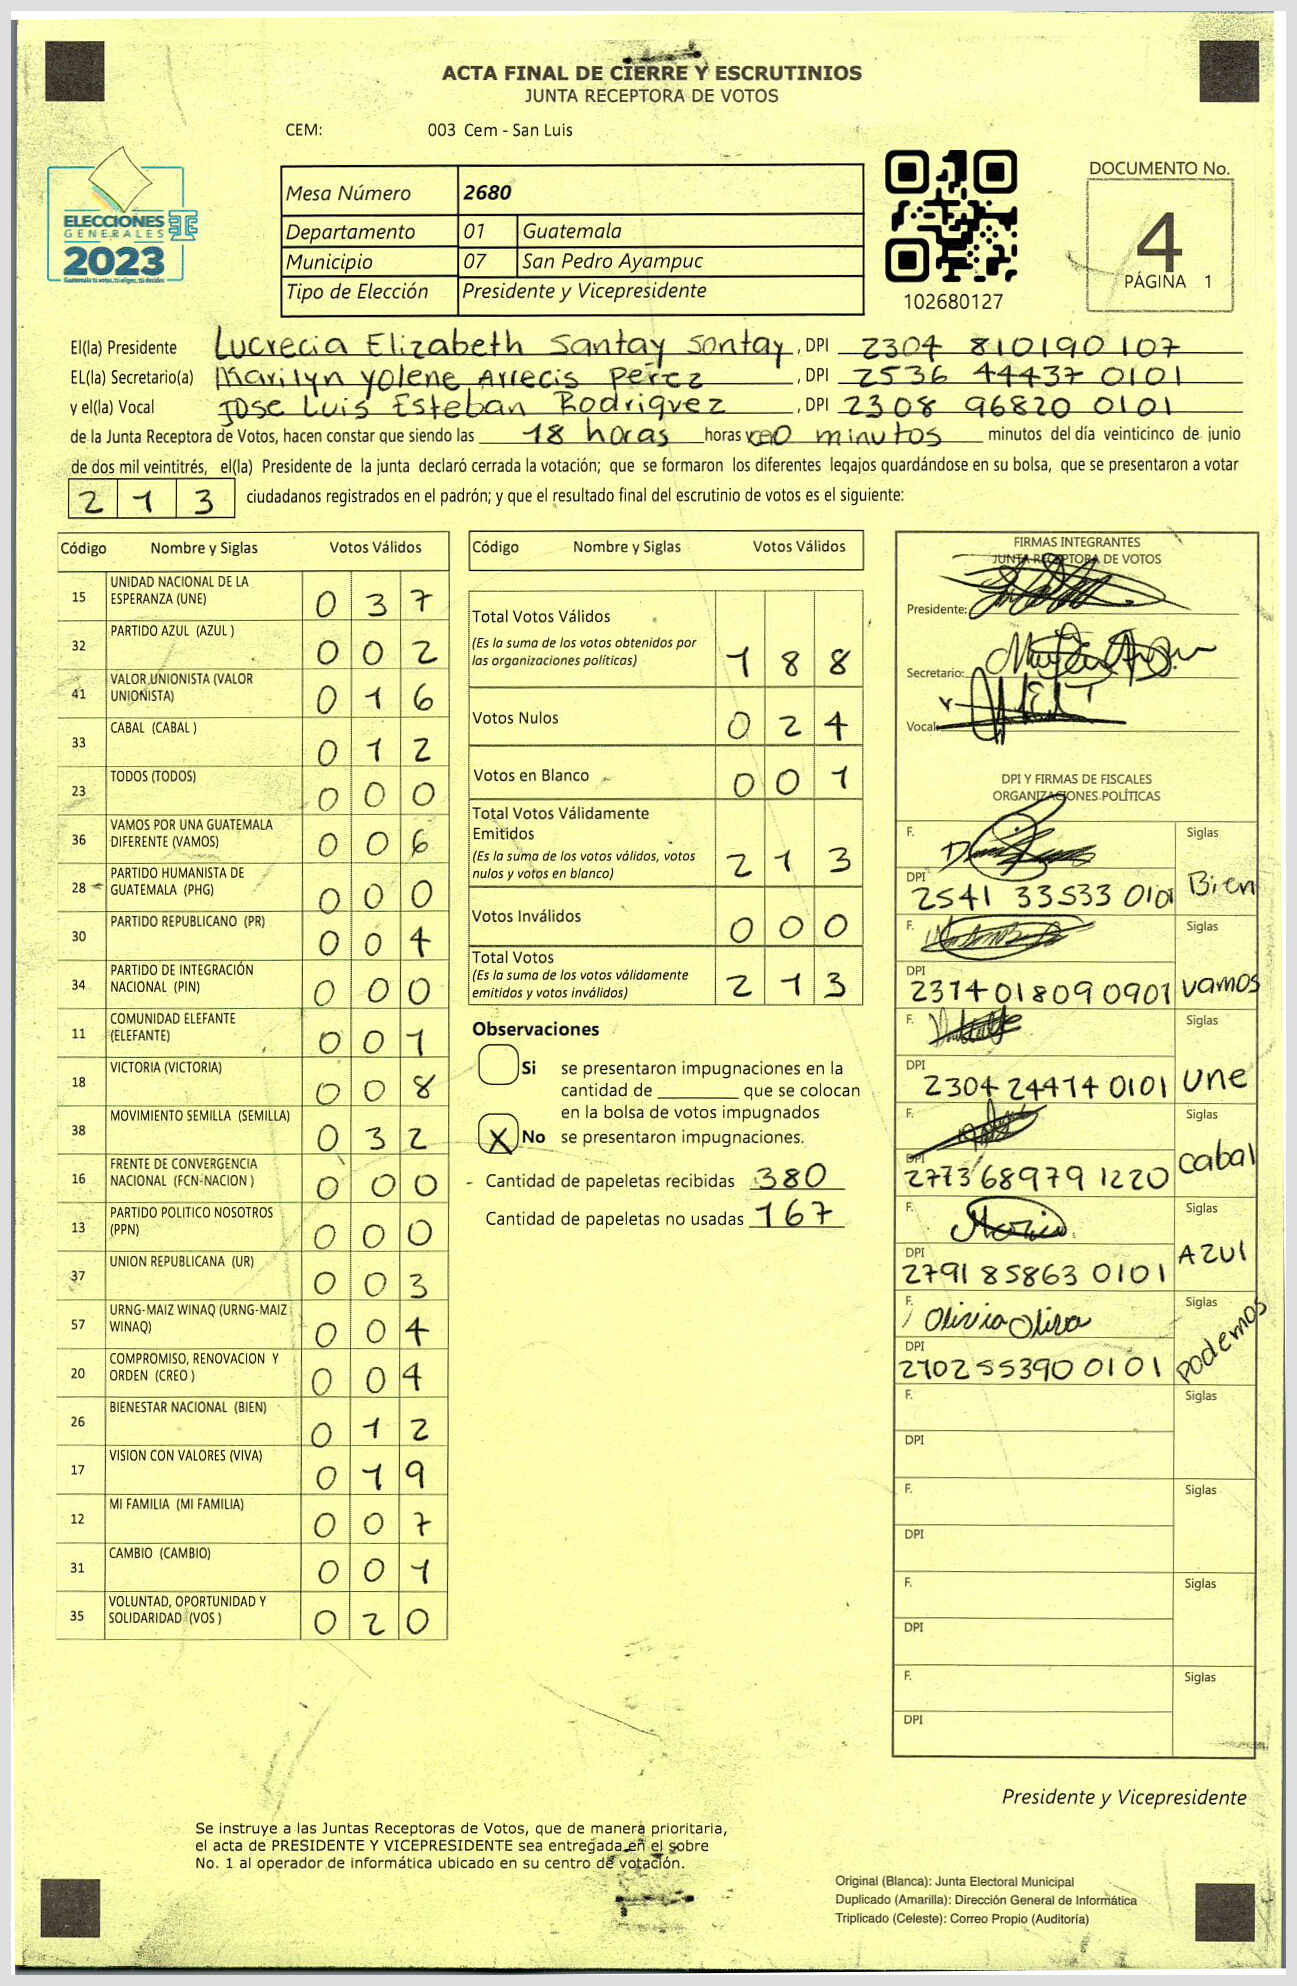 ACTA FINAL DE CIERRE Y ESCRUTINIOS
JUNTA RECEPTORA DE VOTOS
CEM: 003 Cem - San Luis
ELECCIONES
GENERALES
2023
Guatemala tu votas, tu eliges, tu decides
Mesa Número 2680
Departamento 01 Guatemala
Municipio 07 San Pedro Ayampuc
Tipo de Elección Presidente y Vicepresidente
102680127
DOCUMENTO No.
4
PÁGINA 1
El(la) Presidente Lucrecia Elizabeth Santay Santay, DPI 2304 810190107
EL(la) Secretario(a) Marilyn Yolene Arrecis Perez, DPI 2536 44437 0101
y el(la) Vocal Jose Luis Esteban Rodriguez, DPI 2308 96820 0101
de la Junta Receptora de Votos, hacen constar que siendo las 18 horas horas y ceo minutos minutos del día veinticinco de junio
de dos mil veintitrés, el(la) Presidente de la junta declaró cerrada la votación; que se formaron los diferentes legajos guardándose en su bolsa, que se presentaron a votar
213 ciudadanos registrados en el padrón; y que el resultado final del escrutinio de votos es el siguiente:
Código Nombre y Siglas Votos Válidos
15 UNIDAD NACIONAL DE LA ESPERANZA (UNE) 037
32 PARTIDO AZUL (AZUL ) 002
41 VALOR UNIONISTA (VALOR UNIONISTA) 016
33 CABAL (CABAL ) 012
23 TODOS (TODOS) 000
36 VAMOS POR UNA GUATEMALA DIFERENTE (VAMOS) 006
28 PARTIDO HUMANISTA DE GUATEMALA (PHG) 000
30 PARTIDO REPUBLICANO (PR) 004
34 PARTIDO DE INTEGRACIÓN NACIONAL (PIN) 000
11 COMUNIDAD ELEFANTE (ELEFANTE) 001
18 VICTORIA (VICTORIA) 008
38 MOVIMIENTO SEMILLA (SEMILLA) 032
16 FRENTE DE CONVERGENCIA NACIONAL (FCN-NACION ) 000
13 PARTIDO POLITICO NOSOTROS (PPN) 000
37 UNION REPUBLICANA (UR) 003
57 URNG-MAIZ WINAQ (URNG-MAIZ WINAQ) 004
20 COMPROMISO, RENOVACION Y ORDEN (CREO ) 004
26 BIENESTAR NACIONAL (BIEN) 012
17 VISION CON VALORES (VIVA) 019
12 MI FAMILIA (MI FAMILIA) 007
31 CAMBIO (CAMBIO) 001
35 VOLUNTAD, OPORTUNIDAD Y SOLIDARIDAD (VOS ) 020
Código Nombre y Siglas Votos Válidos
Total Votos Válidos
(Es la suma de los votos obtenidos por
las organizaciones políticas) 188
Votos Nulos 024
Votos en Blanco 001
Total Votos Válidamente
Emitidos
(Es la suma de los votos válidos, votos
nulos y votos en blanco) 213
Votos Inválidos 000
Total Votos
(Es la suma de los votos válidamente
emitidos y votos inválidos) 213
Observaciones
Si se presentaron impugnaciones en la
cantidad de ________ que se colocan
en la bolsa de votos impugnados
X No se presentaron impugnaciones.
Cantidad de papeletas recibidas 380
Cantidad de papeletas no usadas 167
FIRMAS INTEGRANTES
JUNTA RECEPTORA DE VOTOS
Presidente:
Secretario:
Vocal:
DPI Y FIRMAS DE FISCALES
ORGANIZACIONES POLÍTICAS
F. Siglas
DPI 2541 33533 0101 Bien
F. Siglas
DPI 2314 01809 0901 vamos
F. Siglas
DPI 2304 24414 0101 une
F. Siglas
DPI 2773 68979 1220 cabal
F. Siglas
DPI 2791 85863 0101 AZUl
F. Olivia Oliva Siglas
DPI 2702 55390 0101 podemos
F. Siglas
DPI
F. Siglas
DPI
F. Siglas
DPI
F. Siglas
DPI
Presidente y Vicepresidente
Se instruye a las Juntas Receptoras de Votos, que de manera prioritaria,
el acta de PRESIDENTE Y VICEPRESIDENTE sea entregada en el sobre
No. 1 al operador de informática ubicado en su centro de votación.
Original (Blanca): Junta Electoral Municipal
Duplicado (Amarilla): Dirección General de Informática
Triplicado (Celeste): Correo Propio (Auditoría)